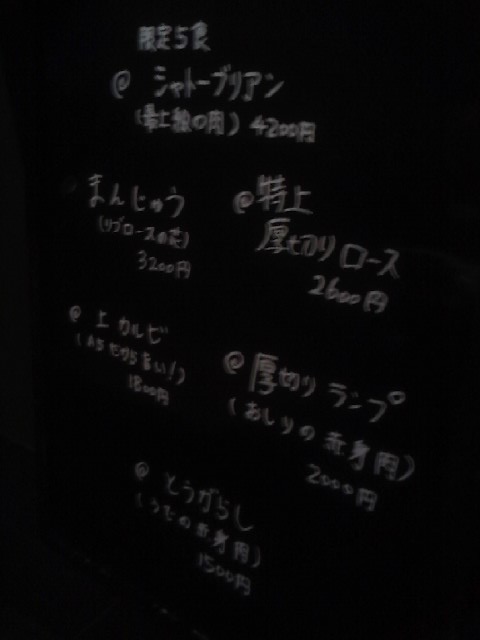 限定5食
@ シャトーブリアン
(最上級の肉) 4200円
まんじゅう
(リブロースの芯)
3200円
@ 特上
厚切りロース
2600円
@ 上カルビ
(A5だから旨い!)
1800円
@ 厚切り ランプ
(おしりの赤身肉)
2000円
@ とうがらし
(うでの赤身肉)
1500円